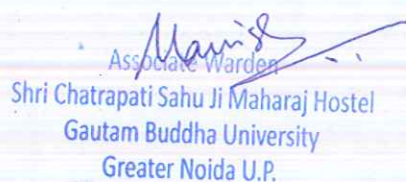 Manish
Associate Warden
Shri Chatrapati Sahu Ji Maharaj Hostel
Gautam Buddha University
Greater Noida U.P.